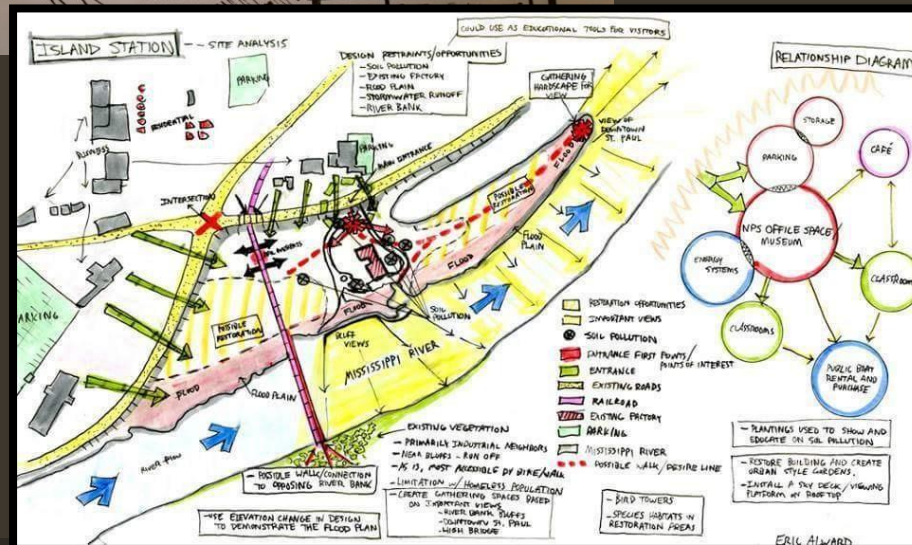 ISLAND STATION -- SITE ANALYSIS
COULD USE AS EDUCATIONAL TOOLS FOR VISITORS
DESIGN RESTRAINTS/OPPORTUNITIES
- SOIL POLLUTION
- EXISTING FACTORY
- FLOOD PLAIN
- STORMWATER RUNOFF
- RIVER BANK
GATHERING
HARDSCAPE FOR
VIEW
VIEW OF
DOWNTOWN
ST. PAUL
PARKING
RESIDENTIAL
BUSINESS
PARKING
MAIN ENTRANCE
INTERSECTION
FLOOD
POSSIBLE
RESTORATION
FLOOD
PLAIN
FLOOD
FLOOD
SOIL
POLLUTION
POSSIBLE
RESTORATION
BLUFF
VIEWS
MISSISSIPPI RIVER
PARKING
FLOOD
FLOOD PLAIN
RIVER FLOW
RESTORATION OPPORTUNITIES
IMPORTANT VIEWS
SOIL POLLUTION
ENTRANCE FIRST POINTS/
POINTS OF INTEREST
ENTRANCE
EXISTING ROADS
RAILROAD
EXISTING FACTORY
PARKING
MISSISSIPPI RIVER
POSSIBLE WALK/DESIRE LINE
EXISTING VEGETATION
- PRIMARILY INDUSTRIAL NEIGHBORS
- NEAR BLUFFS - RUN OFF
- AS IS, MOST ACCESSIBLE BY BIKE/WALK
- LIMITATION W/ HOMELESS POPULATION
- CREATE GATHERING SPACES BASED
ON IMPORTANT VIEWS
- RIVER BANK BLUFFS
- DOWNTOWN ST. PAUL
- HIGH BRIDGE
- POSSIBLE WALK/CONNECTION
TO OPPOSING RIVER BANK
- USE ELEVATION CHANGE IN DESIGN
TO DEMONSTRATE THE FLOOD PLAN
- BIRD TOWERS
- SPECIES HABITATS IN
RESTORATION AREAS
RELATIONSHIP DIAGRAM
STORAGE
PARKING
CAFÉ
NPS OFFICE SPACE
MUSEUM
ENERGY
SYSTEMS
CLASSROOMS
PUBLIC BOAT
RENTAL AND
PURCHASE
- PLANTINGS USED TO SHOW AND
EDUCATE ON SOIL POLLUTION
- RESTORE BUILDING AND CREATE
URBAN STYLE GARDENS.
- INSTALL A SKY DECK/VIEWING
PLATFORM ON ROOFTOP
ERIC ALWARD